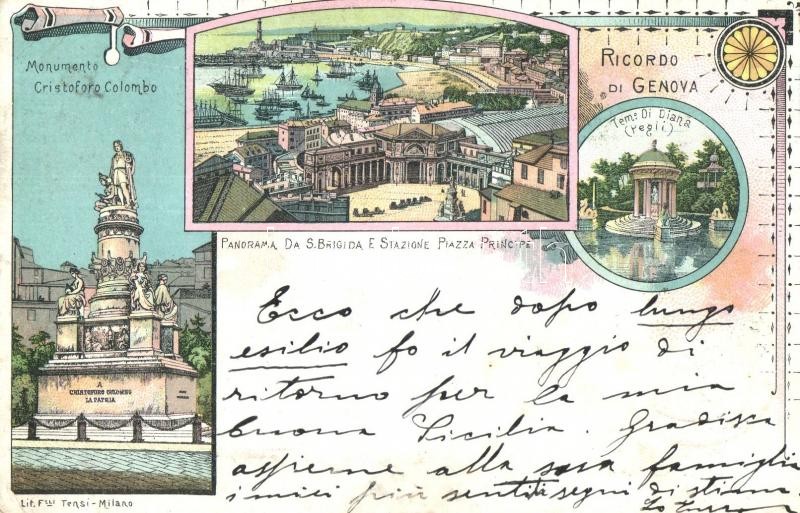 Monumento
Cristoforo Colombo
RICORDO
DI GENOVA
Tem: Di Diana
(Pegli)
PANORAMA DA S. BRIGIDA E STAZIONE PIAZZA PRINCIPE
A
CRISTOFORO COLOMBO
LA PATRIA
Ecco che dopo lungo
esilio fo il viaggio di
ritorno per la mia
buona Sicilia. Gradisca
assieme alla sua famiglia
i miei più sentiti segni di stima
Lit. F.lli Tensi - Milano